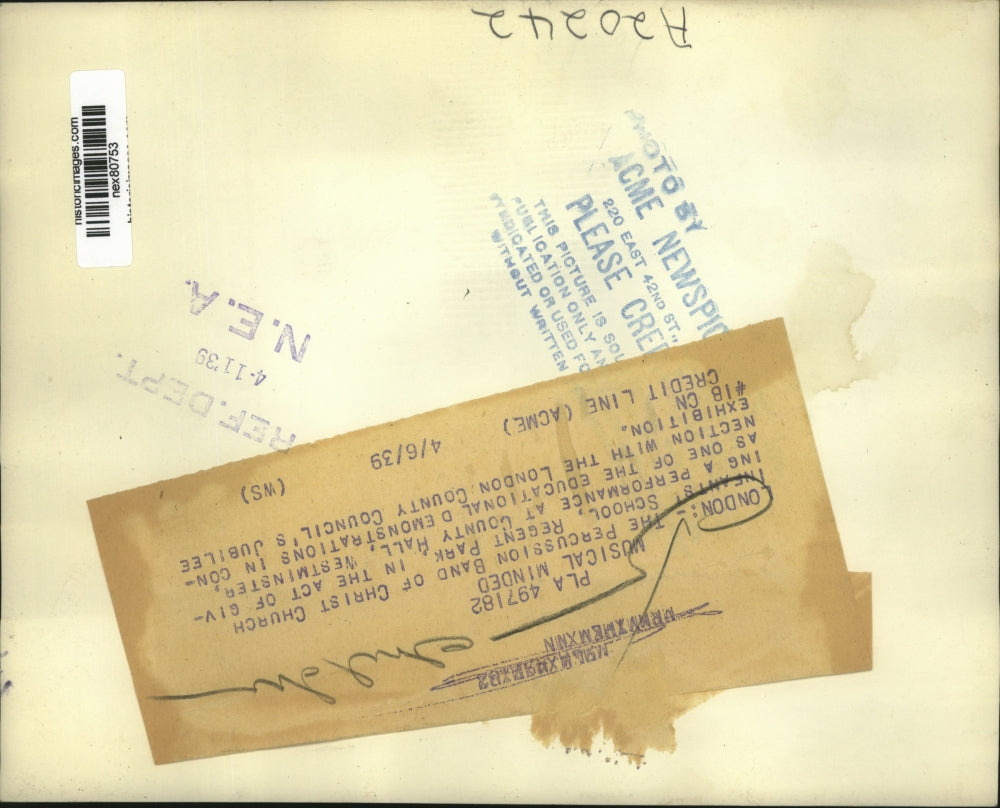 A20242
historicimages.com
nex80753
PHOTO BY
ACME NEWSPIC
220 EAST 42ND ST.,
PLEASE CRE
THIS PICTURE IS SOL
PUBLICATION ONLY AN
SYNDICATED OR USED FO
WITHOUT WRITTEN
N.E.A.
4-11 39
REF. DEPT.
PLA 497182
MUSICAL MINDED
LONDON:- THE PERCUSSION BAND OF CHRIST CHURCH
INFANTS SCHOOL, REGENT PARK, IN THE ACT OF GIV-
ING A PERFORMANCE AT COUNTY HALL, WESTMINSTER,
AS ONE OF THE EDUCATIONAL DEMONSTRATIONS IN CON-
NECTION WITH THE LONDON COUNTY COUNCIL'S JUBILEE
EXHIBITION.
#1B CN
CREDIT LINE (ACME) 4/6/39 (WS)